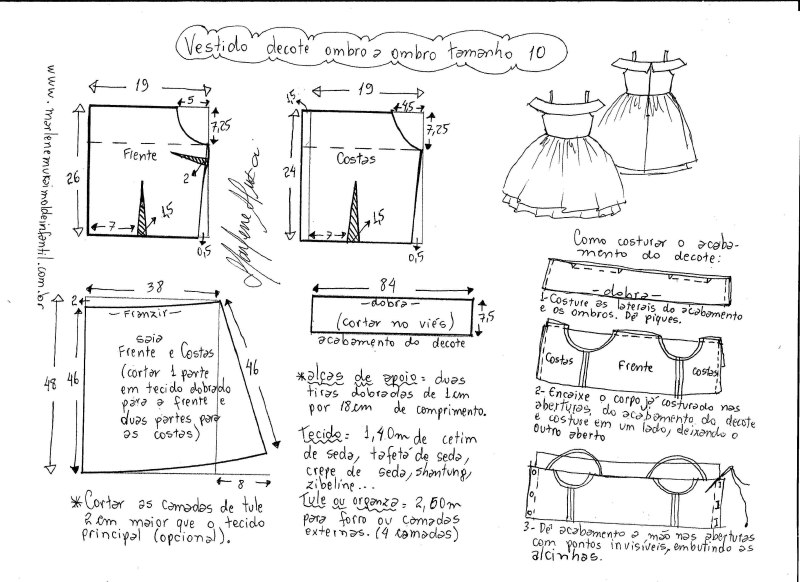 Vestido decote ombro a ombro tamanho 10
www.marlenemukaimoldeinfantil.com.br
19
5
7,25
26
Frente
2
7
1,5
0,5
Marlene Mukai
19
1,5
4,5
7,25
24
Costas
7
1,5
0,5
38
2
Franzir
48
46
saia
Frente e Costas
(cortar 1 parte
em tecido dobrado
para a frente e
duas partes para
as costas)
46
8
*Cortar as camadas de tule
2 cm maior que o tecido
principal (opcional).
84
dobra
(cortar no viés)
7,5
acabamento do decote
*alças de apoio = duas
tiras dobradas de 1cm
por 18cm de comprimento.
Tecido = 1,40m de cetim
de seda, tafetá de seda,
crepe de seda, shantung,
zibeline...
Tule ou organza = 2,60m
para forro ou camadas
externas. (4 camadas)
Como costurar o acaba-
mento do decote:
dobra
1-Costure as laterais do acabamento
e os ombros. Dê piques.
Costas
Frente
costas
2- Encaixe o corpo já costurado nas
aberturas do acabamento do decote
e costure em um lado, deixando o
outro aberto
3- Dê acabamento a mão nas aberturas
com pontos invisíveis, embutindo as
alcinhas.